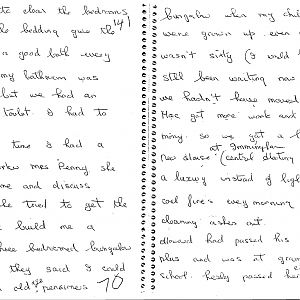 to clear the bedrooms
the bedding give the
a good bath every
my bathroom was
but we had an
toilet. I had to
time I had a
Mrs Penny she
me and discuss
she tried to get the
build me a
three bedroomed bungalow
they said I could
old age pensioners 70
141
bungalow when my chil
were grown up. even
wasn't sixty (I would h
still been waiting now
we hadn't have moved
Mac get more work and
money. so we got a
at Immingham
new house (central heating
a luxury instead of ligh
coal fires every morning
cleaning ashes out.
had passed his
plus and was at gram
school. had passed her